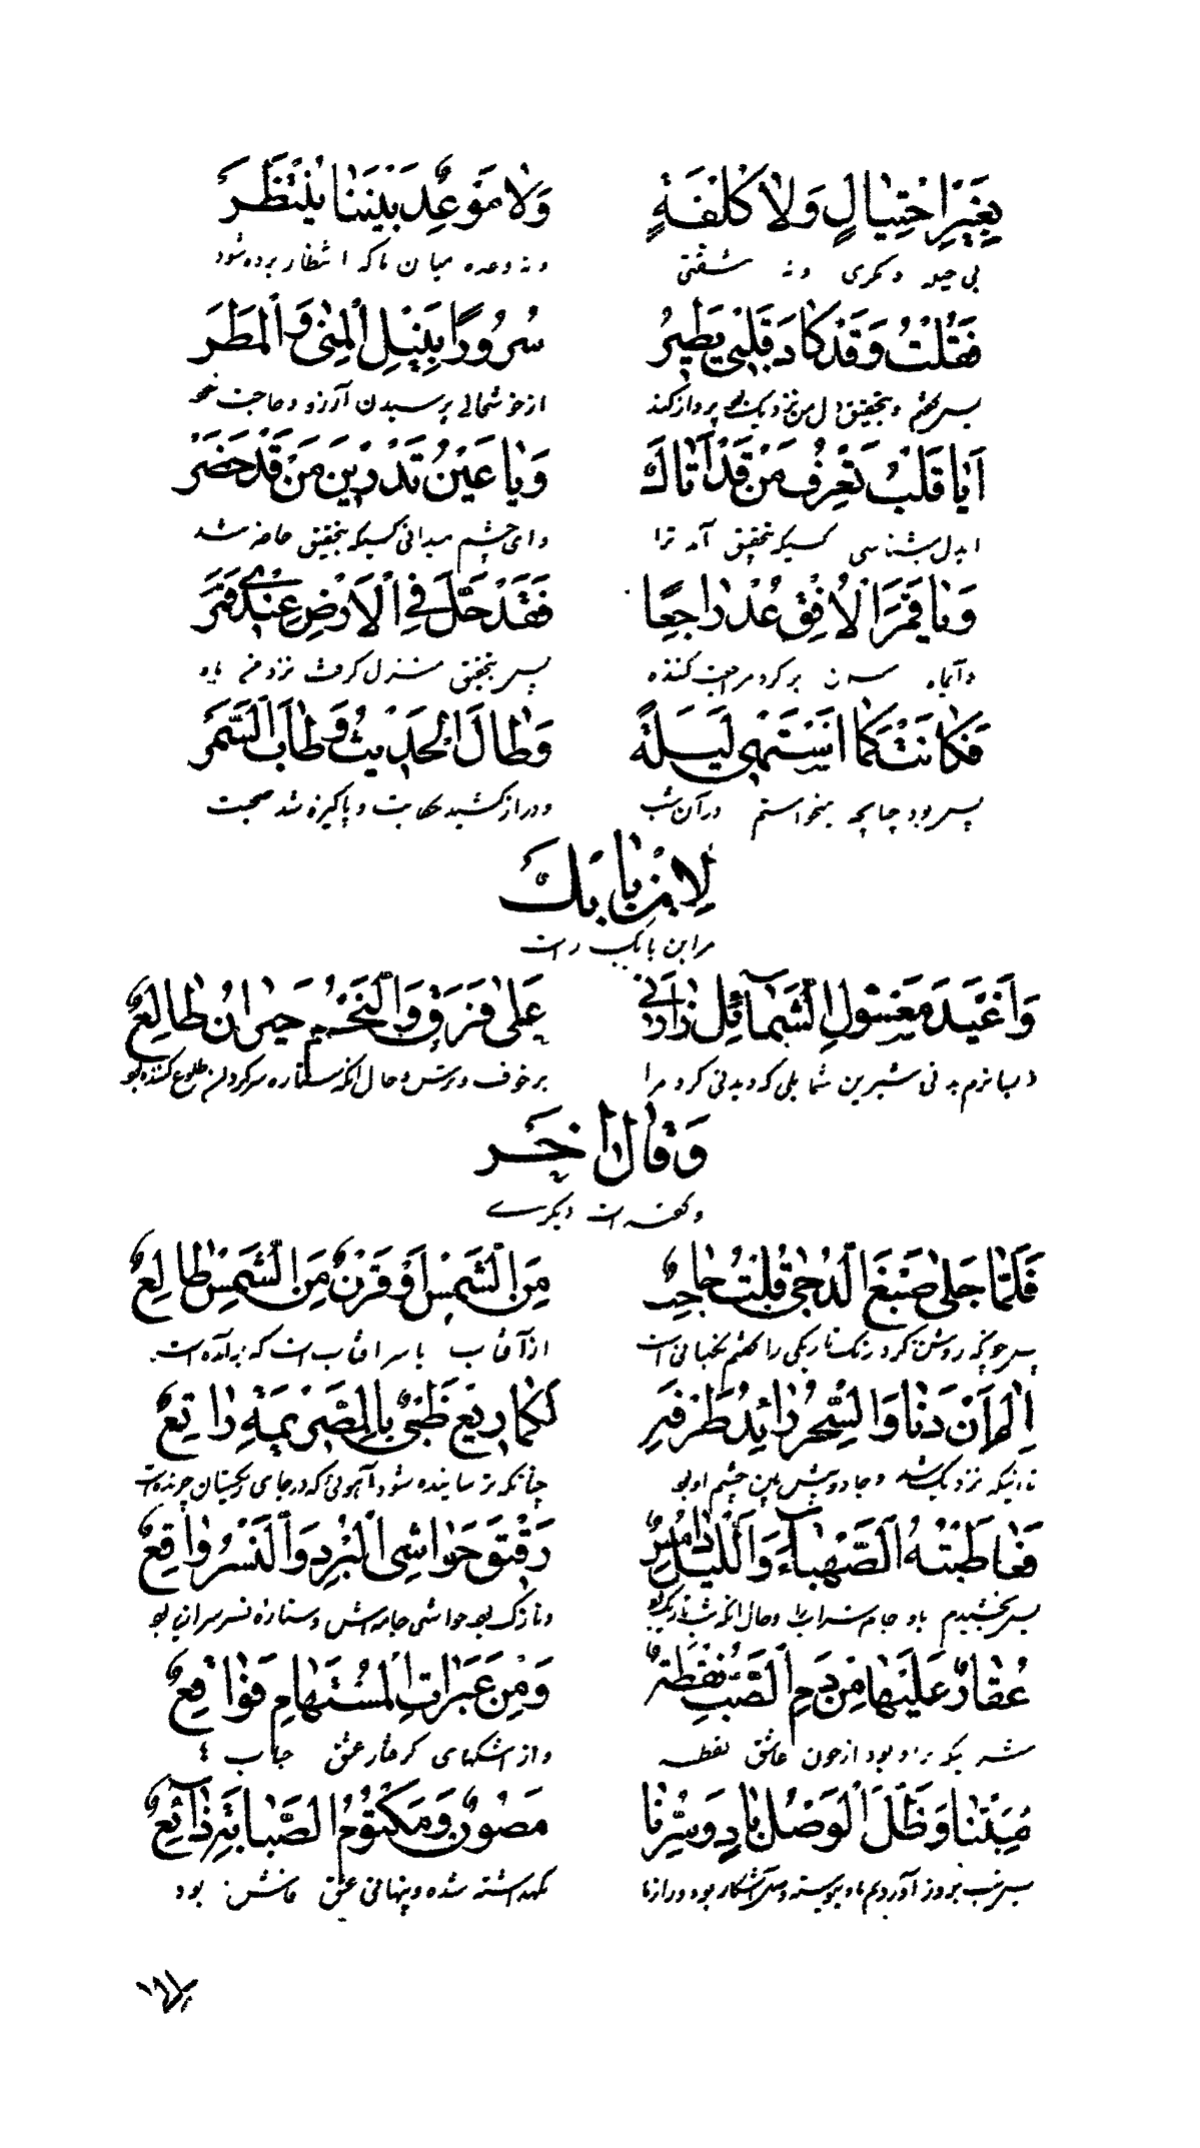 بِغَيْرِ احْتِيَالٍ وَلَا كُلْفَةٍ وَلَا مَوْعِدٍ بَيْنَنَا يُنْتَظَرْ
بی حیله و مکری و نه مشقتی و نه وعده میان ما که انتظار برده شود
فَقُلْتُ وَقَدْ كَادَ قَلْبِي يَطِيرُ سُرُورًا بِنَيْلِ الْمُنَى وَالْمَطَرَ
پس گفتم و بتحقیق دل من نزدیک بود پرواز کند از خوشحالی برسیدن آرزو و حاجت
أَيَا قَلْبُ تَعْرِفُ مَنْ قَدْ أَتَاكَ وَيَا عَيْنُ تَدْرِينَ مَنْ قَدْ حَضَرْ
ایدل بشناسی کسیکه بتحقیق آمد ترا و ای چشم میدانی کسیکه بتحقیق حاضر شد
وَيَا قَمَرَ الْأُفْقِ عُدْ رَاجِعًا فَقَدْ حَلَّ فِي الْأَرْضِ عِنْدِي قَمَرْ
برگرد مراجعت کننده پس بتحقیق منزل گرفت نزد من
فَكَانَتْ كَمَا أَشْتَهِي لَيْلَةً وَطَالَ الْحَدِيثُ وَطَابَ السَّمَرْ
پس بود چنانچه میخواستم در آن شب و دراز کشید حکایت و پاکیزه شد صحبت
لِابْنِ بَابَكَ
مر ابن بابک راست
وَأَغْيَدَ مَعْسُولِ الشَّمَائِلِ زَارَنِي عَلَى فَرَقٍ وَالنَّجْمُ حَيْرَانُ طَالِعُ
نرم بدنی شیرین شمایلی که دیدنی کرد مرا بر خوف و ترس و حال آنکه ستاره سرگردان طلوع کننده بود
وَقَالَ آخَرُ
و گفته است دیگری
فَلَمَّا جَلَى صَبْغَ الدُّجَى قُلْتُ حَاجِبٌ مِنَ الشَّمْسِ أَوْ قَرْنٌ مِنَ الشَّمْسِ طَالِعُ
پس چونکه روشن کرد رنگ تاریکی را گفتم از آفتاب یا سر آفتاب است که برآمده است
إِلَى أَنْ دَنَا وَالسِّحْرُ رَائِدُ طَرْفِهِ كَمَا رِيعَ ظَبْيٌ بِالصَّرِيمَةِ رَاتِعُ
تا آنیکه نزدیک شد و جادو پیش بین چشم او بود چنانکه ترسانیده شود آهوئی که در جای ریگستان چرنده است
فَعَاطَيْتُهُ الصَّهْبَاءَ وَاللَّيْلُ دَامِسٌ رَقِيقُ حَوَاشِي الْبُرْدِ وَالنَّسْرُ وَاقِعُ
پس بخشیدم باو جام شراب را و حال آنکه شب تاریک بود و نازک بود حواشی جامه اش و ستاره نسر
عُقَارٌ عَلَيْهَا مِنْ دَمِ الصَّبِّ نُقْطَةٌ وَمِنْ عَبَرَاتِ الْمُسْتَهَامِ فَوَاقِعُ
که بر او بود از خون عاشق نقطه و از اشکهای گرفتار عشق حباب
فَبِتْنَا وَظَلَّ الْوَصْلُ بَادٍ وَسِرُّنَا مَصُونٌ وَمَكْتُومُ الصَّبَابَةِ ذَائِعُ
پس شب بروز آوردیم ما و پیوسته وصل آشکار بود و راز ما نگهداشته شده و پنهانی عشق فاش بود